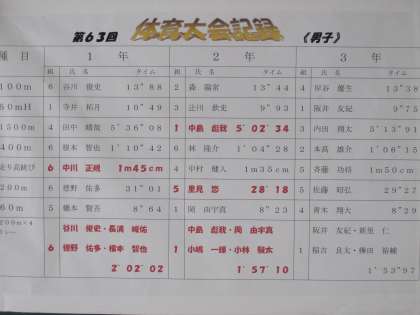 第63回 体育大会記録 《男子》
種目 1年 2年 3年
組 氏名 タイム 組 氏名 タイム 組 氏名 タイム
100m 6 谷川 俊史 13"88 2 森 陽常 13"44 4 岸谷 優生 13"38
80mH 1 寺井 拓月 10"49 3 辻川 飲史 9"93 1 阪井 友紀 9"75
1500m 4 田中 晴哉 5'36"08 1 中島 彪哉 5'02"34 3 内田 翔太 5'13"91
400m 6 根本 智也 1'10"42 6 林 隆介 1'04"28 2 本髙 雄介 1'06"15
走り高跳び 6 中川 正規 1m45cm 4 中村 健入 1m35cm 5 斉藤 功将 1m50cm
200m 6 徳野 佑多 31"01 5 里見 悠 28"18 5 佐藤 昭弘 29"27
60m 5 橋本 賢吾 8"64 1 岡 由宇真 8"23 4 青木 翔大 8"29
200m×4
リレー 谷川 俊史・長浦 峻佑 中島 彪哉・岡 由宇真 阪井 友紀・
6 徳野 佑多・根本 智也 1 小嶋 一輝・小林 駿太 1 稲吉 良太・柳田 裕輔
2'02"02 1'57"10 1'53"97